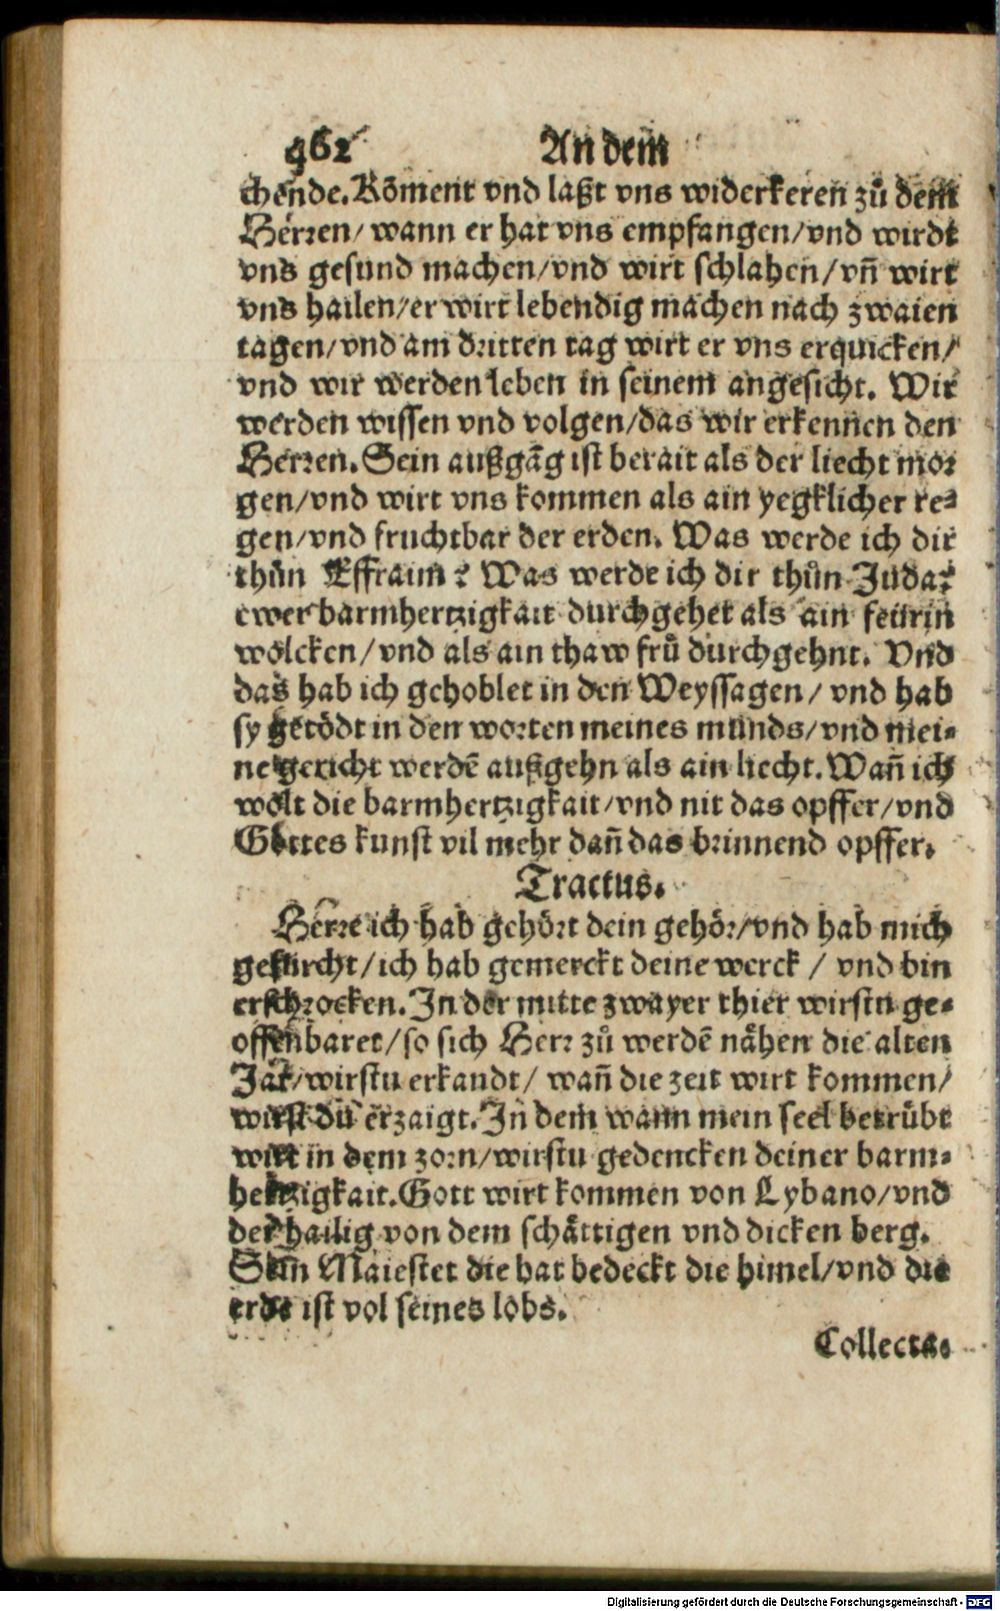 462 An dem
chende. Kōment vnd laßt vns widerkeren zů dem
Herꝛen/ wann er hat vns empfangen/vnd wirdt
vns gesund machen/vnd wirt schlahen/vñ wirt
vns hailen/er wirt lebendig machen nach zwaien
tagen/vnd am dꝛitten tag wirt er vns erquicken/
vnd wir werden leben in seinem angesicht. Wir
werden wissen vnd volgen/das wir erkennen den
Herꝛen. Sein außgāg ist berait als der liecht moꝛ
gen/vnd wirt vns kommen als ain yegklicher re⸗
gen/vnd fruchtbar der erden. Was werde ich dir
thůn Effraim? Was werde ich dir thůn Juda?
ewer barmhertzigkait durchgehet als ain feürin
wolcken/vnd als ain thaw frů durchgehnt. Vnd
das hab ich gehoblet in den Weyssagen/ vnd hab
sy getödt in den woꝛten meines munds/vnd mei⸗
ne gericht werdē außgehn als ain liecht. Wañ ich
wolt die barmhertzigkait/vnd nit das opffer/vnd
Gottes kunst vil mehr dañ das bꝛinnend opffer.
Tractus.
Herꝛe ich hab gehöꝛt dein gehöꝛ/vnd hab mich
gefürcht/ich hab gemerckt deine werck / vnd bin
erschꝛocken. In der mitte zwayer thier wirstu ge⸗
offenbaret/so sich Herꝛ zů werdē nähen die alten
Jar/wirstu erkandt/ wañ die zeit wirt kommen/
wirst du erzaigt. In dem wann mein seel betrübt
wirt in dem zoꝛn/wirstu gedencken deiner barm⸗
hertzigkait. Gott wirt kommen von Lybano/vnd
der hailig von dem schättigen vnd dicken berg.
Sein Maiestet die hat bedeckt die himel/vnd die
erde ist vol seines lobs.
Collecta.
Digitalisierung gefördert durch die Deutsche Forschungsgemeinschaft - DFG